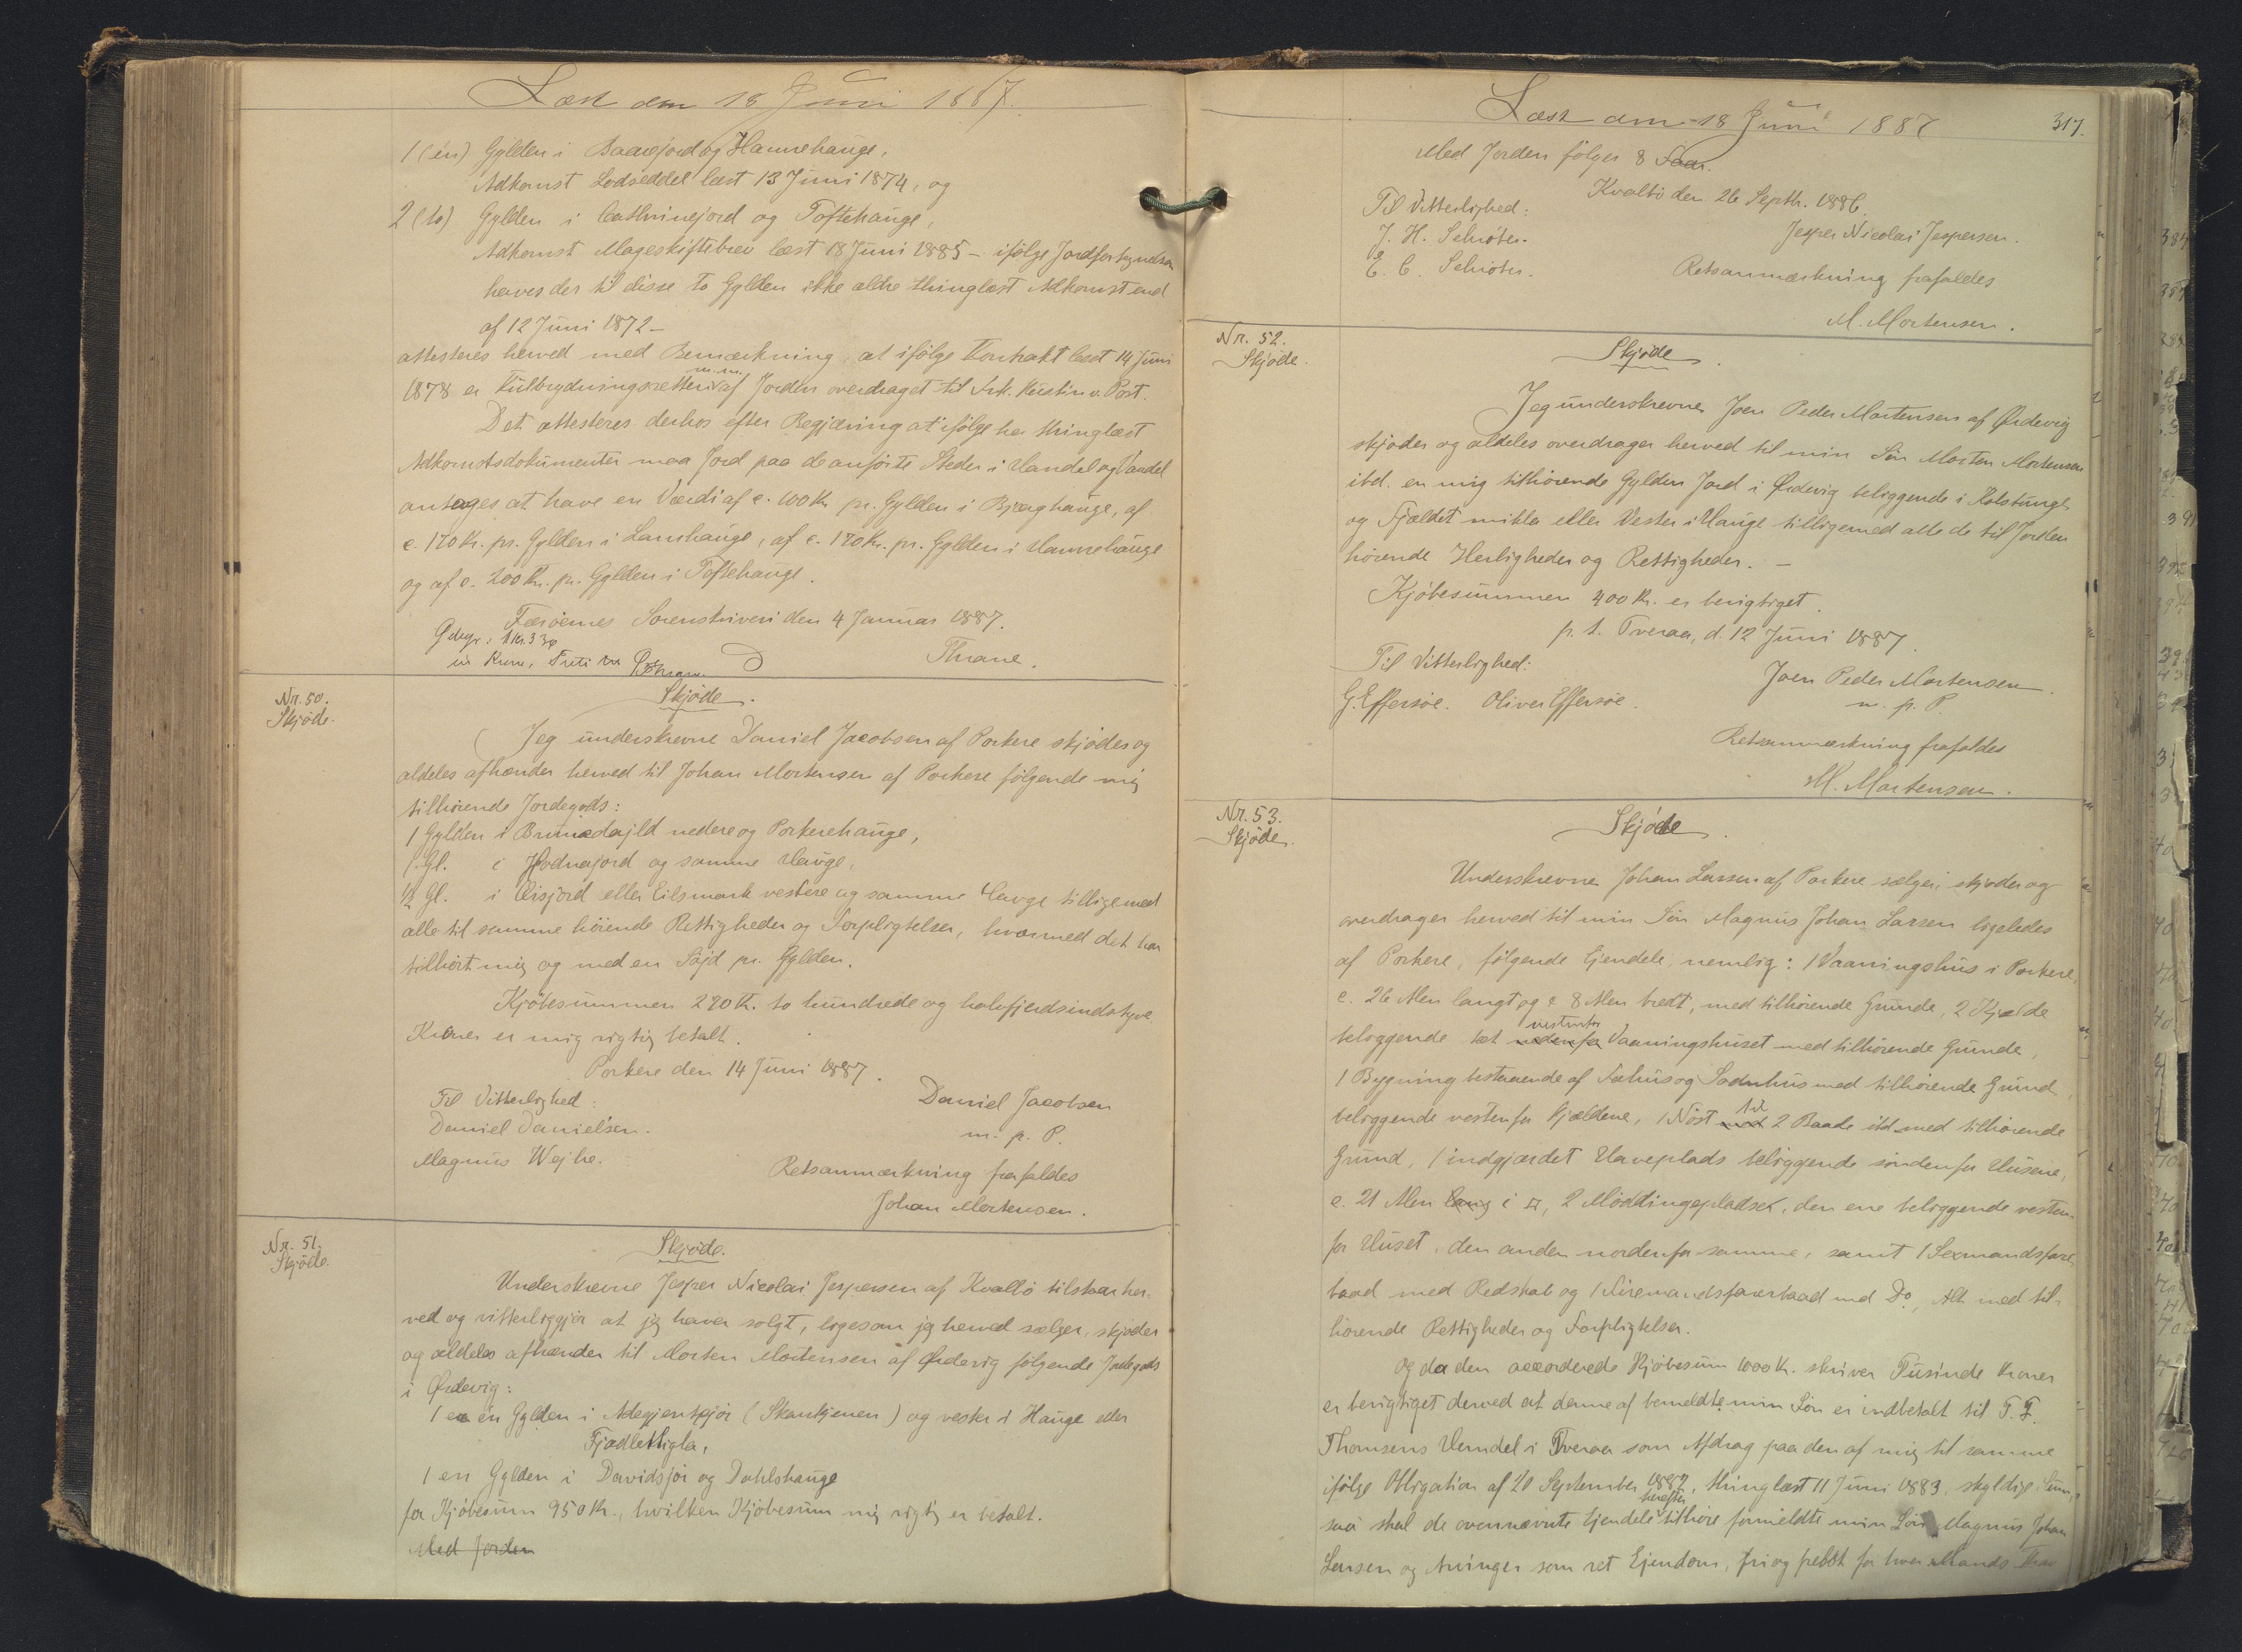 Læst den 18 Juni 1887.
1 (en) Gylden i Baarejord og Hannehauge,
Adkomst Lodseddel læst 13 Juni 1874, og
2 (to) Gylden i Cathrinejord og Toftehauge,
Adkomst Mageskiftebrev læst 18 Juni 1885 – ifølge Jordfortegnelsen
haves der til disse to Gylden ikke ældre thinglæst Adkomst end
af 12 Juni 1872 –
attesteres herved med Bemærkning, at ifølge Kontrakt læst 14 Juni
1878 er Kulbrydningsretten m.m. af Jorden overdraget til Frk. Kirstin v. Post.
Det attesteres derhos efter Begjæring at ifølge her thinglæst
Adkomstsdokumenter maa Jord paa de anførte Steder i Handel og Vandel
antages at have en Værdi af c. 100 Kr. pr. Gylden i Bjæghauge, af
c. 170 Kr. pr. Gylden i Lamhauge, af c. 170 Kr. pr. Gylden i Hannehauge
og af c. 200 Kr. pr. Gylden i Toftehauge.
Færøernes Sorenskriveri den 4 Januar 1887.
Gebyr: 1 Kr. 33ø
en Krone, Treti tre
Thrane.
Nr. 50.
Skjøde.
Skjøde.
Jeg underskrevne Daniel Jacobsen af Porkere skjøder og
aldeles afhænder herved til Johan Mortensen af Porkere følgende mig
tilhørende Jordegods:
1 Gylden i Brunedajld nedere og Porkerehauge,
1. Gl. i Hodnajord og samme Hauge,
½ Gl. i Eisjord eller Eilsmark vestere og samme Hauge tilligemed
alle til samme hørende Rettigheder og Forpligtelser, hvormed det har
tilhørt mig og med en Søjd pr. Gylden.
Kjøbesummen 270 Kr. to hundrede og halvfjerdsindstyve
Kroner er mig rigtig betalt.
Porkere den 14 Juni 1887.
Til Vitterlighed:
Daniel Jacobsen
Daniel Danielsen.
m. p. P.
Magnus Wejhe.
Retsanmærkning frafaldes
Johan Mortensen.
Nr. 51.
Skjøde.
Skjøde.
Underskrevne Jesper Nicolai Jespersen af Kvalbø tilstaar her-
ved og vitterliggjør at jeg haver solgt, ligesom jeg herved sælger, skjøder
og aldeles afhænder til Morten Mortensen af Ørdevig følgende Jordegods
i Ørdevig:
1 en Gylden i Adegjerstejør (Skantjenen) og vester i Hauge eller
Fjadlettigla,
1 en Gylden i Davidsjør og Dahlshauge
for Kjøbesum 950 Kr., hvilken Kjøbesum mig rigtig er betalt.
Med Jorden
Læst den 18 Juni 1887
317.
Med Jorden følger 8 Faar.
Kvalbø den 26 Septbr. 1886.
Til Vitterlighed:
Jesper Nicolai Jespersen.
J. H. Schrøter.
E. C. Schrøter.
Retsanmærkning frafaldes
M. Mortensen.
Nr. 52.
Skjøde.
Skjøde.
Jeg underskrevne Joen Peder Mortensen af Ørdevig
skjøder og aldeles overdrager herved til min Søn Morten Mortensen
ibd. en mig tilhørende Gylden Jord i Ørdevig beliggende i Kolstungl
og Fjældet mikla eller Vester i Hauge tilligemed alle de til Jorden
hørende Herligheder og Rettigheder. –
Kjøbesummen 400 Kr. er berigtiget.
p. t. Tveraa, d. 12 Juni 1887.
Til Vitterlighed:
Joen Peder Mortensen.
G. Effersøe. Oliver Effersøe.
m. p. P.
Retsanmærkning frafaldes
M. Mortensen.
Nr. 53.
Skjøde.
Skjøde.
Underskrevne Johan Larsen af Porkere sælger, skjøder og
overdrager herved til min Søn Magnus Johan Larsen ligeledes
af Porkere, følgende Ejendele, nemlig: 1 Vaaningshus i Porkere,
c. 26 Alen langt og c. 8 Alen bredt, med tilhørende Grunde, 2 Kjælde
beliggende tæt nedenfor vestenfor Vaaningshuset med tilhørende Grunde,
1 Bygning bestaaende af Fæhus og Sodnhus med tilhørende Grund,
beliggende vestenfor Kjældene, 1 Nøst med til 2 Baade ibd. med tilhørende
Grund, 1 indgjærdet Haveplads beliggende søndenfor Husene,
c. 21 Alen lang i □, 2 Møddingepladser, den ene beliggende vesten-
for Huset, den anden nordenfor samme, samt 1 Sexmandsfare-
baad med Redskab og 1 Firemandsfarerbaad med Do., Alt med til-
hørende Rettigheder og Forpligtelser.
Og da den accorderede Kjøbesum 1000 Kr. skriver Tusinde Kroner
er berigtiget derved at denne af bemeldte min Søn er indbetalt til T. F.
Thomsens Handel i Tveraa som Afdrag paa den af mig til samme
ifølge Obligation af 20 September 1882, thinglæst 11 Juni 1883, skyldige Sum,
saa skal de ovennævnte Ejendele herefter tilhøre formeldte min Søn Magnus Johan
Larsen og Arvinger som ret Ejendom, fri og frelst for hver Mands